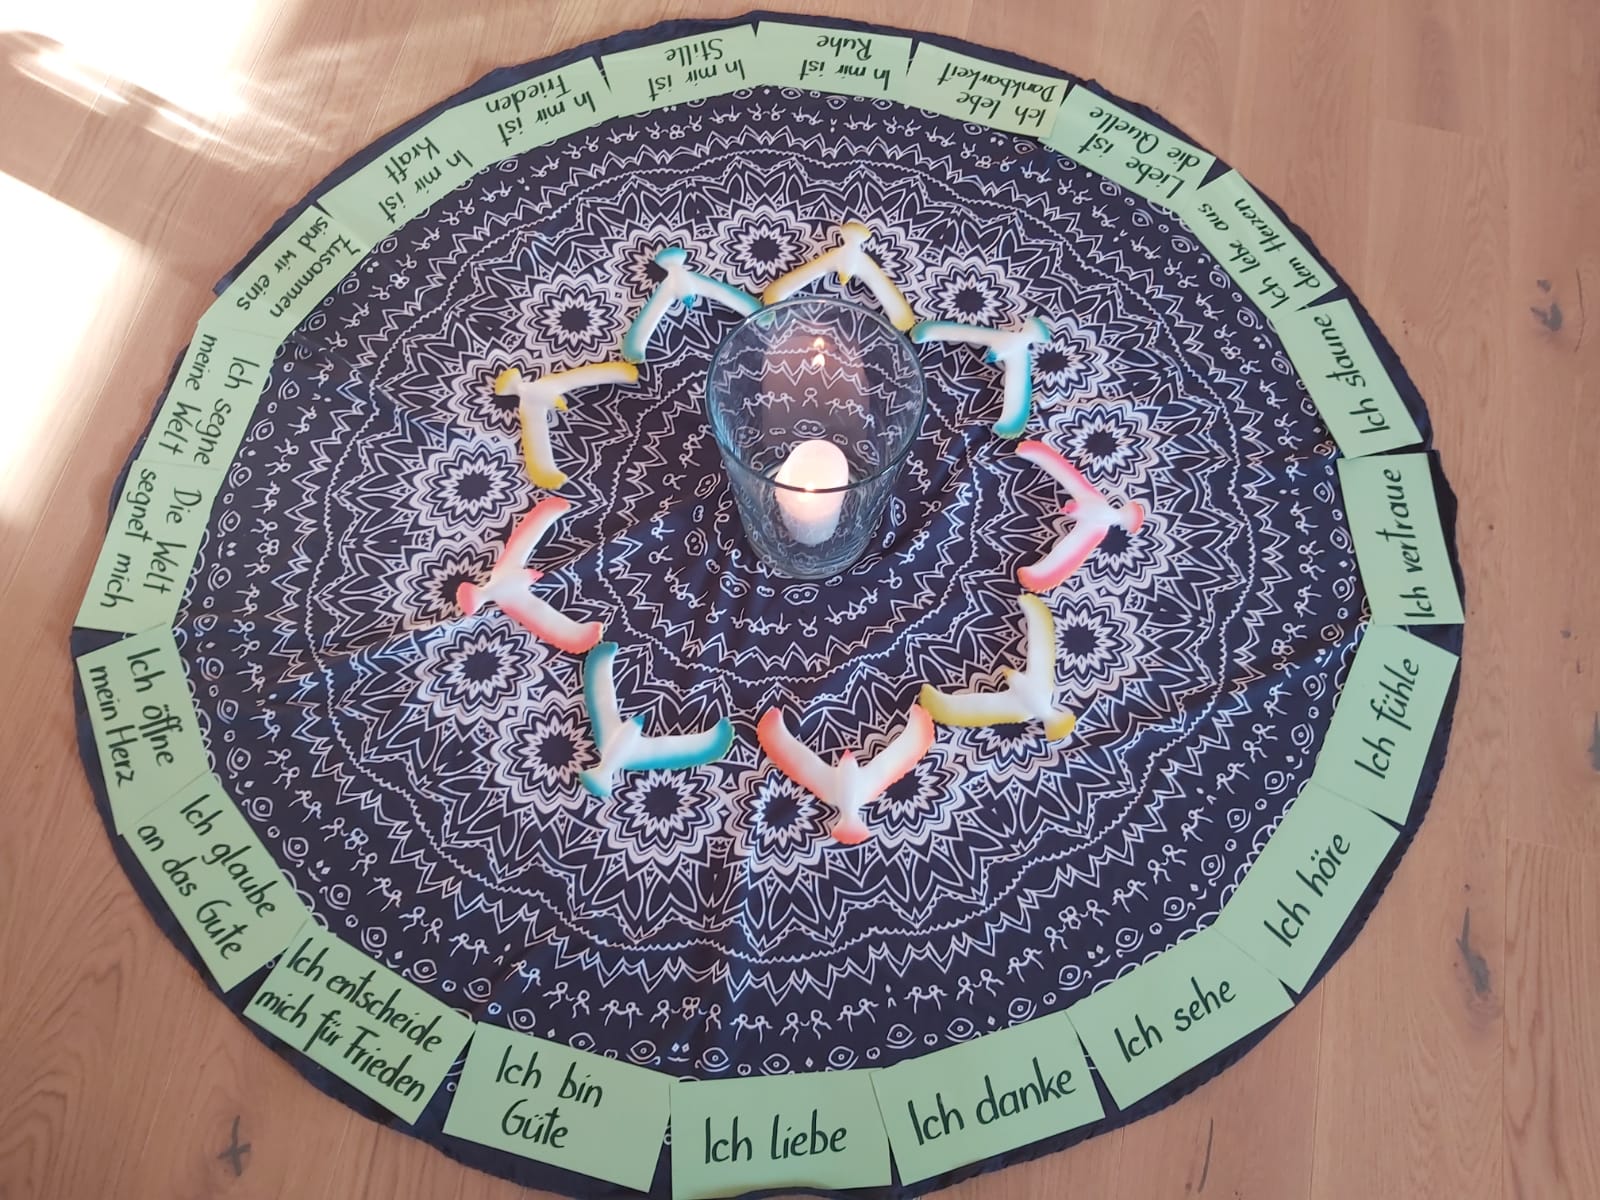 Ich liebe
Ich danke
Ich sehe
Ich höre
Ich fühle
Ich vertraue
Ich staune
Ich lebe aus
dem Herzen
Liebe ist
die Quelle
Ich lebe
Dankbarkeit
In mir ist
Ruhe
In mir ist
Stille
In mir ist
Frieden
In mir ist
Kraft
Zusammen
sind wir eins
Ich segne
meine Welt
Die Welt
segnet mich
Ich öffne
mein Herz
Ich glaube
an das Gute
Ich entscheide
mich für Frieden
Ich bin
Güte